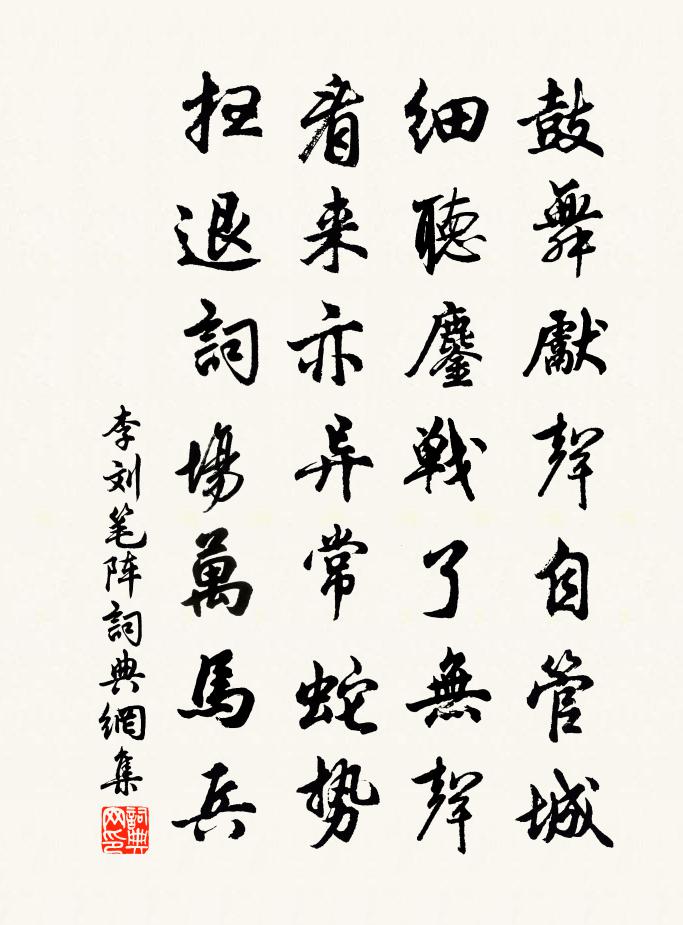 鼓舞獻聲自管城
細聽鏖戦了無聲
看来亦异常蛇势
扫退詞場萬馬兵
李刘笔阵詞典網集
詞典网印